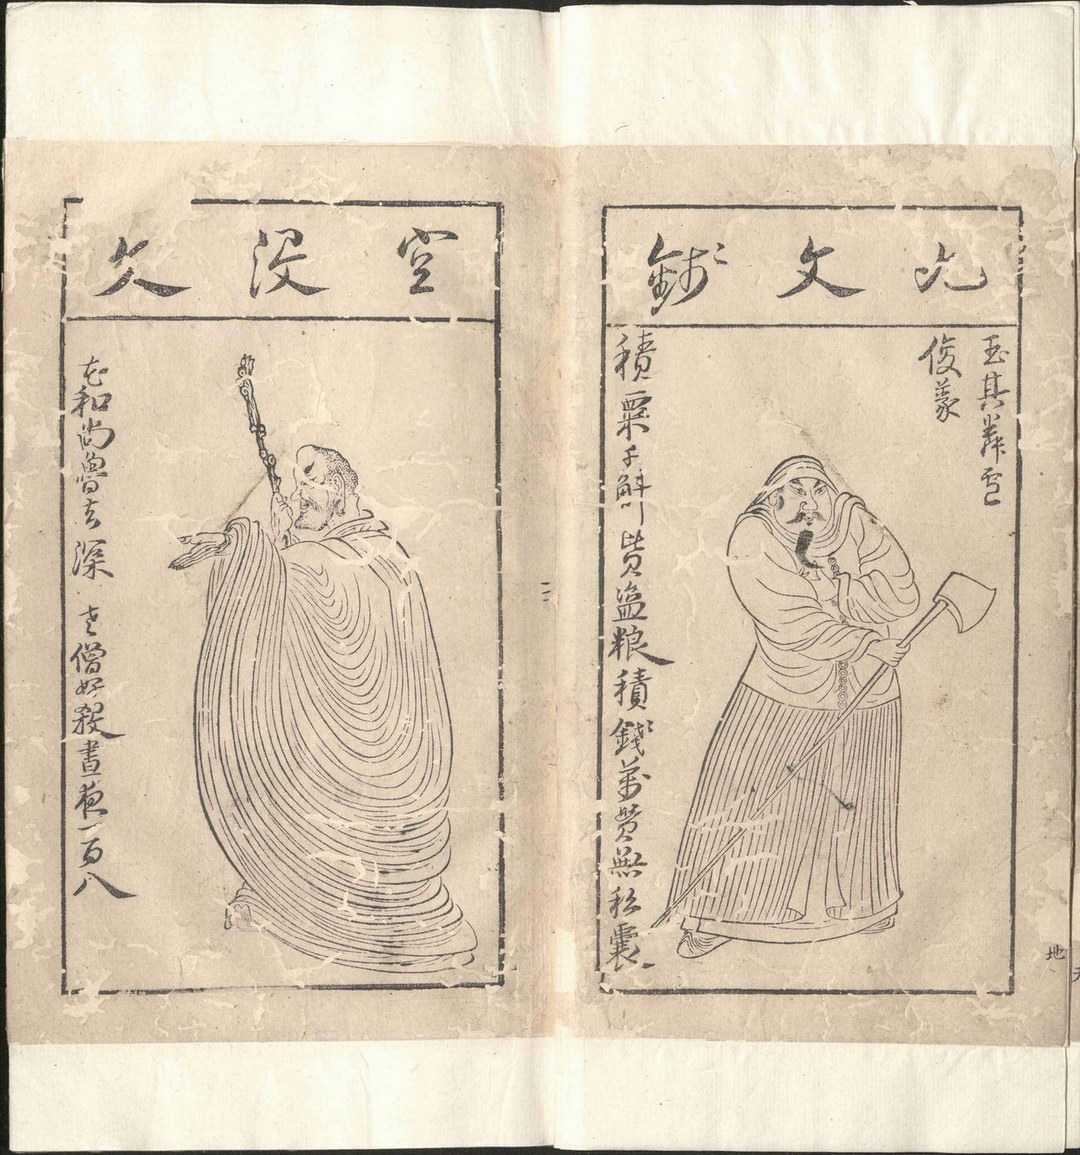 文錢
玉麒麟盧
俊義
積粟千斛貲盜粮積錢萬貫無私囊
空沒文
花和尚魯智深 老僧好殺晝夜一百八
二
地